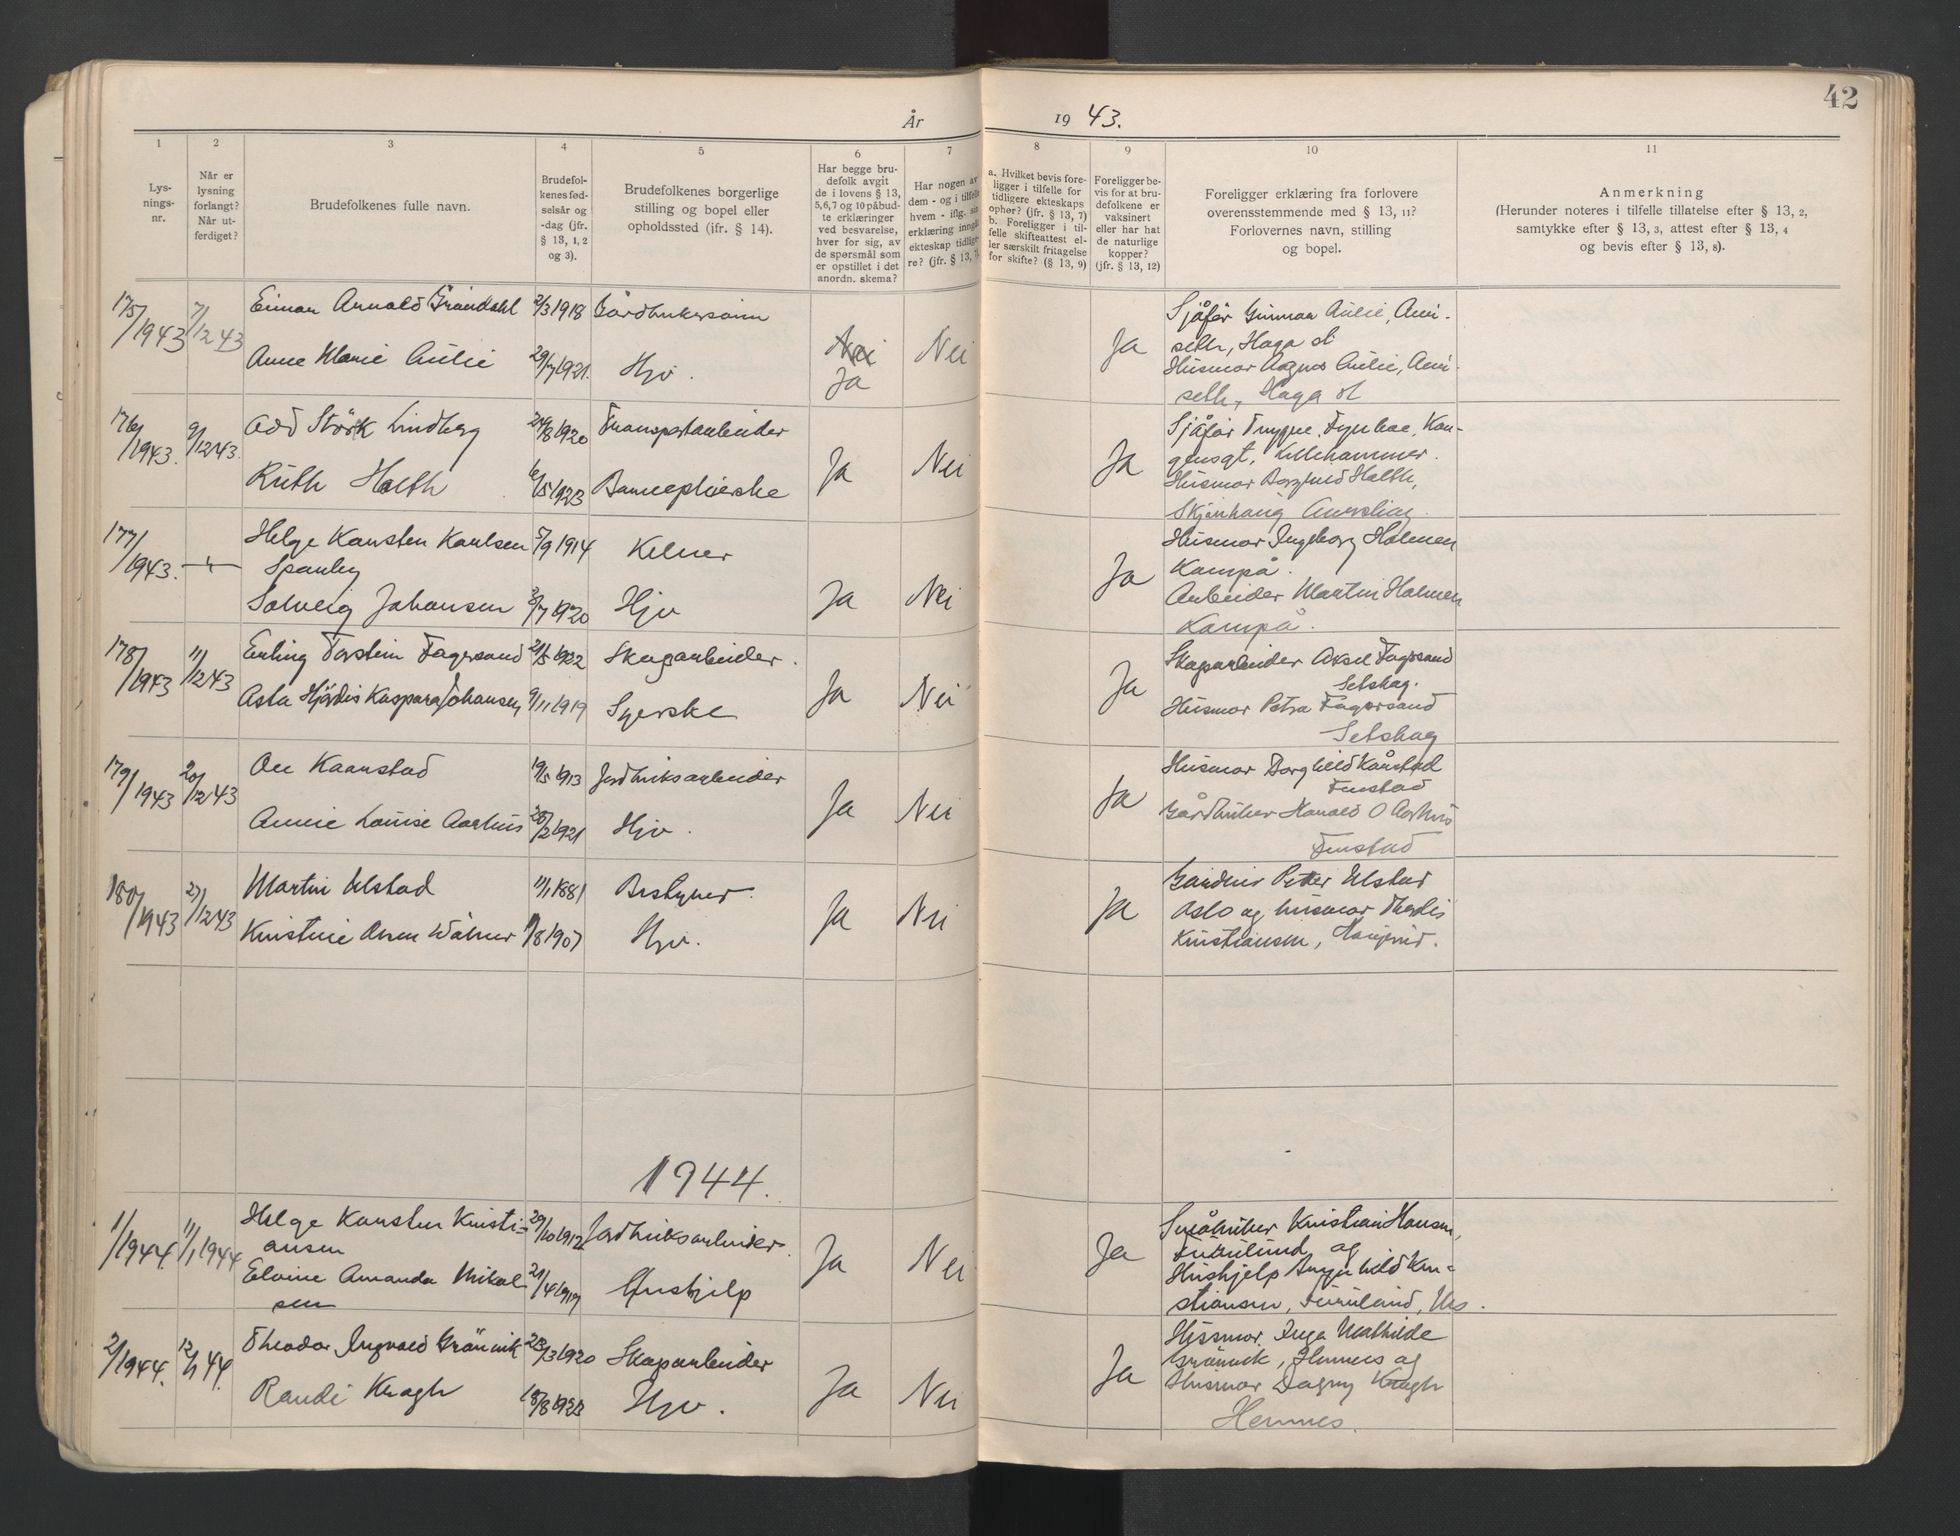 42
År 1943.
1 2 3 4 5 6 7 8 9 10 11
Lys-
nings-
nr.
Når er
lysning
forlangt?
Når ut-
ferdiget?
Brudefolkenes fulle navn.
Brudefol-
kenes fød-
selsår og
-dag (jfr.
§ 13, 1, 2
og 3).
Brudefolkenes borgerlige
stilling og bopel eller
opholdssted (ifr. § 14).
Har begge bru-
defolk avgit
de i lovens § 13,
5,6,7 og 10 påbud-
te erklæringer
ved besvarelse,
hver for sig, av
de spørsmål som
er opstillet i det
anordn. skema?
Har nogen av
dem - og i tilfelle
hvem - iflg. sin
erklæring inngått
ekteskap tidlige-
re? (jfr. § 13, 7)
a. Hvilket bevis fore-
ligger i tilfelle for
tidligere ekteskaps
ophør? (jfr. § 13, 7)
b. Foreligger i til-
felle skifteattest el-
ler særskilt fritagelse
for skifte? (§ 13, 9)
Foreligger be-
vis for at bru-
defolkene er
vaksinert
eller har hat
de naturlige
kopper?
(jfr. § 13, 12)
Foreligger erklæring fra forlovere
overensstemmende med § 13, 11?
Forlovernes navn, stilling
og bopel.
Anmerkning
(Herunder noteres i tilfelle tillatelse efter § 13, 2,
samtykke efter § 13, 3, attest efter § 13, 4
og bevis efter § 13, 8).
175/1943 7/12 43 Einar Arnold Grøndahl 2/3 1918 Gårdbrukersønn
Anne Marie Aulie 29/7 1921. Hjv.
Nei
Ja
Nei
Ja
Sjåfør Gunnar Aulie,
seth, Haga st
Husmor Agnes Aulie,
seth, Haga st
176/1943. 9/12 43. Odd Störk Lindberg 24/8 1920 Transportarbeider
Ruth Holth 6/5 1923 Barnepleierske
Ja Nei Ja
Sjåfør Trygve Kon-
gensgt, Lillehammer.
Husmor Borghild Holth,
177/1943. Helge Karsten Karlsen 5/9 1914 Kelner
Spanby
Solveig Johansen 3/7 1920 Hjv
Ja Nei Ja
Husmor Ingeborg Holmen
Kampå.
Arbeider Martin Holmen
Kampå.
178/1943 11/12 43 Erling Torstein Fagersand 21/5 1922 Skogarbeider.
Asta Hjördis Kaspara Johansen 9/11 1919 Syerske
Ja Nei Ja
Skogarbeider Aksel Fagersand
Setskog.
Husmor Petra Fagersand
Setskog
179/1943 20/12 43 Ole Kaarstad 19/5 1913 Jordbruksarbeider
Annie Louise Aarhus 28/2 1921 Hjv.
Ja Nei Ja
Husmor Borghild Kårstad
Fenstad
Gårdbruker Harald O Aarhus
Fenstad
180/1943 27/12 43 Martin Ulstad 11/1 1881 Bestyrer.
Kristine Olsen 1/8 1907 Hjv.
Ja Nei Ja
Petter Ulstad
Oslo og husmor
Kristiansen,
1944.
1/1944. 11/1 1944. Helge Karsten Kristi-
ansen 29/10 1912 Jordbruksarbeider.
Elvine Amanda Mikal-
sen 21/4 1919 Hushjelp
Ja Nei Ja
Småbruker Kristian Hansen,
Furulund og
Hushjelp Ingrid Kri-
stiansen, Furulund,
2/1944. 12/1 44. Theodor Ingvald Grönvik 28/3 1920 Skogarbeider
Randi Kragh 18/8 1923 Hjv.
Ja Nei Ja
Husmor Inga Mathilde
Grönvik, Hemnes og
Husmor Dagny Kragh
Hemnes.